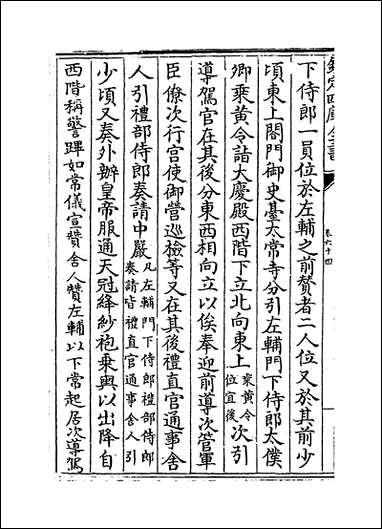 欽定四庫全書
卷六十四
下侍郎一員位於左輔之前贊者二人位又於其前少
頃東上閤門御史臺太常寺分引左輔門下侍郎太僕
卿乘黄令詣大慶殿西階下立北向東上乘黄令位宜後次引
導駕官在其後分東西相向立以俟奉迎前導次管軍
臣僚次行宫使御營巡檢等又在其後禮直官通事舍
人引禮部侍郎奏請中嚴凡左輔門下侍郎禮部侍郎奏請皆禮直官通事舍人引
少頃又奏外辦皇帝服通天冠絳紗袍乗輿以出降自
西階稱警蹕如常儀宣贊舍人贊左輔以下常起居次導駕